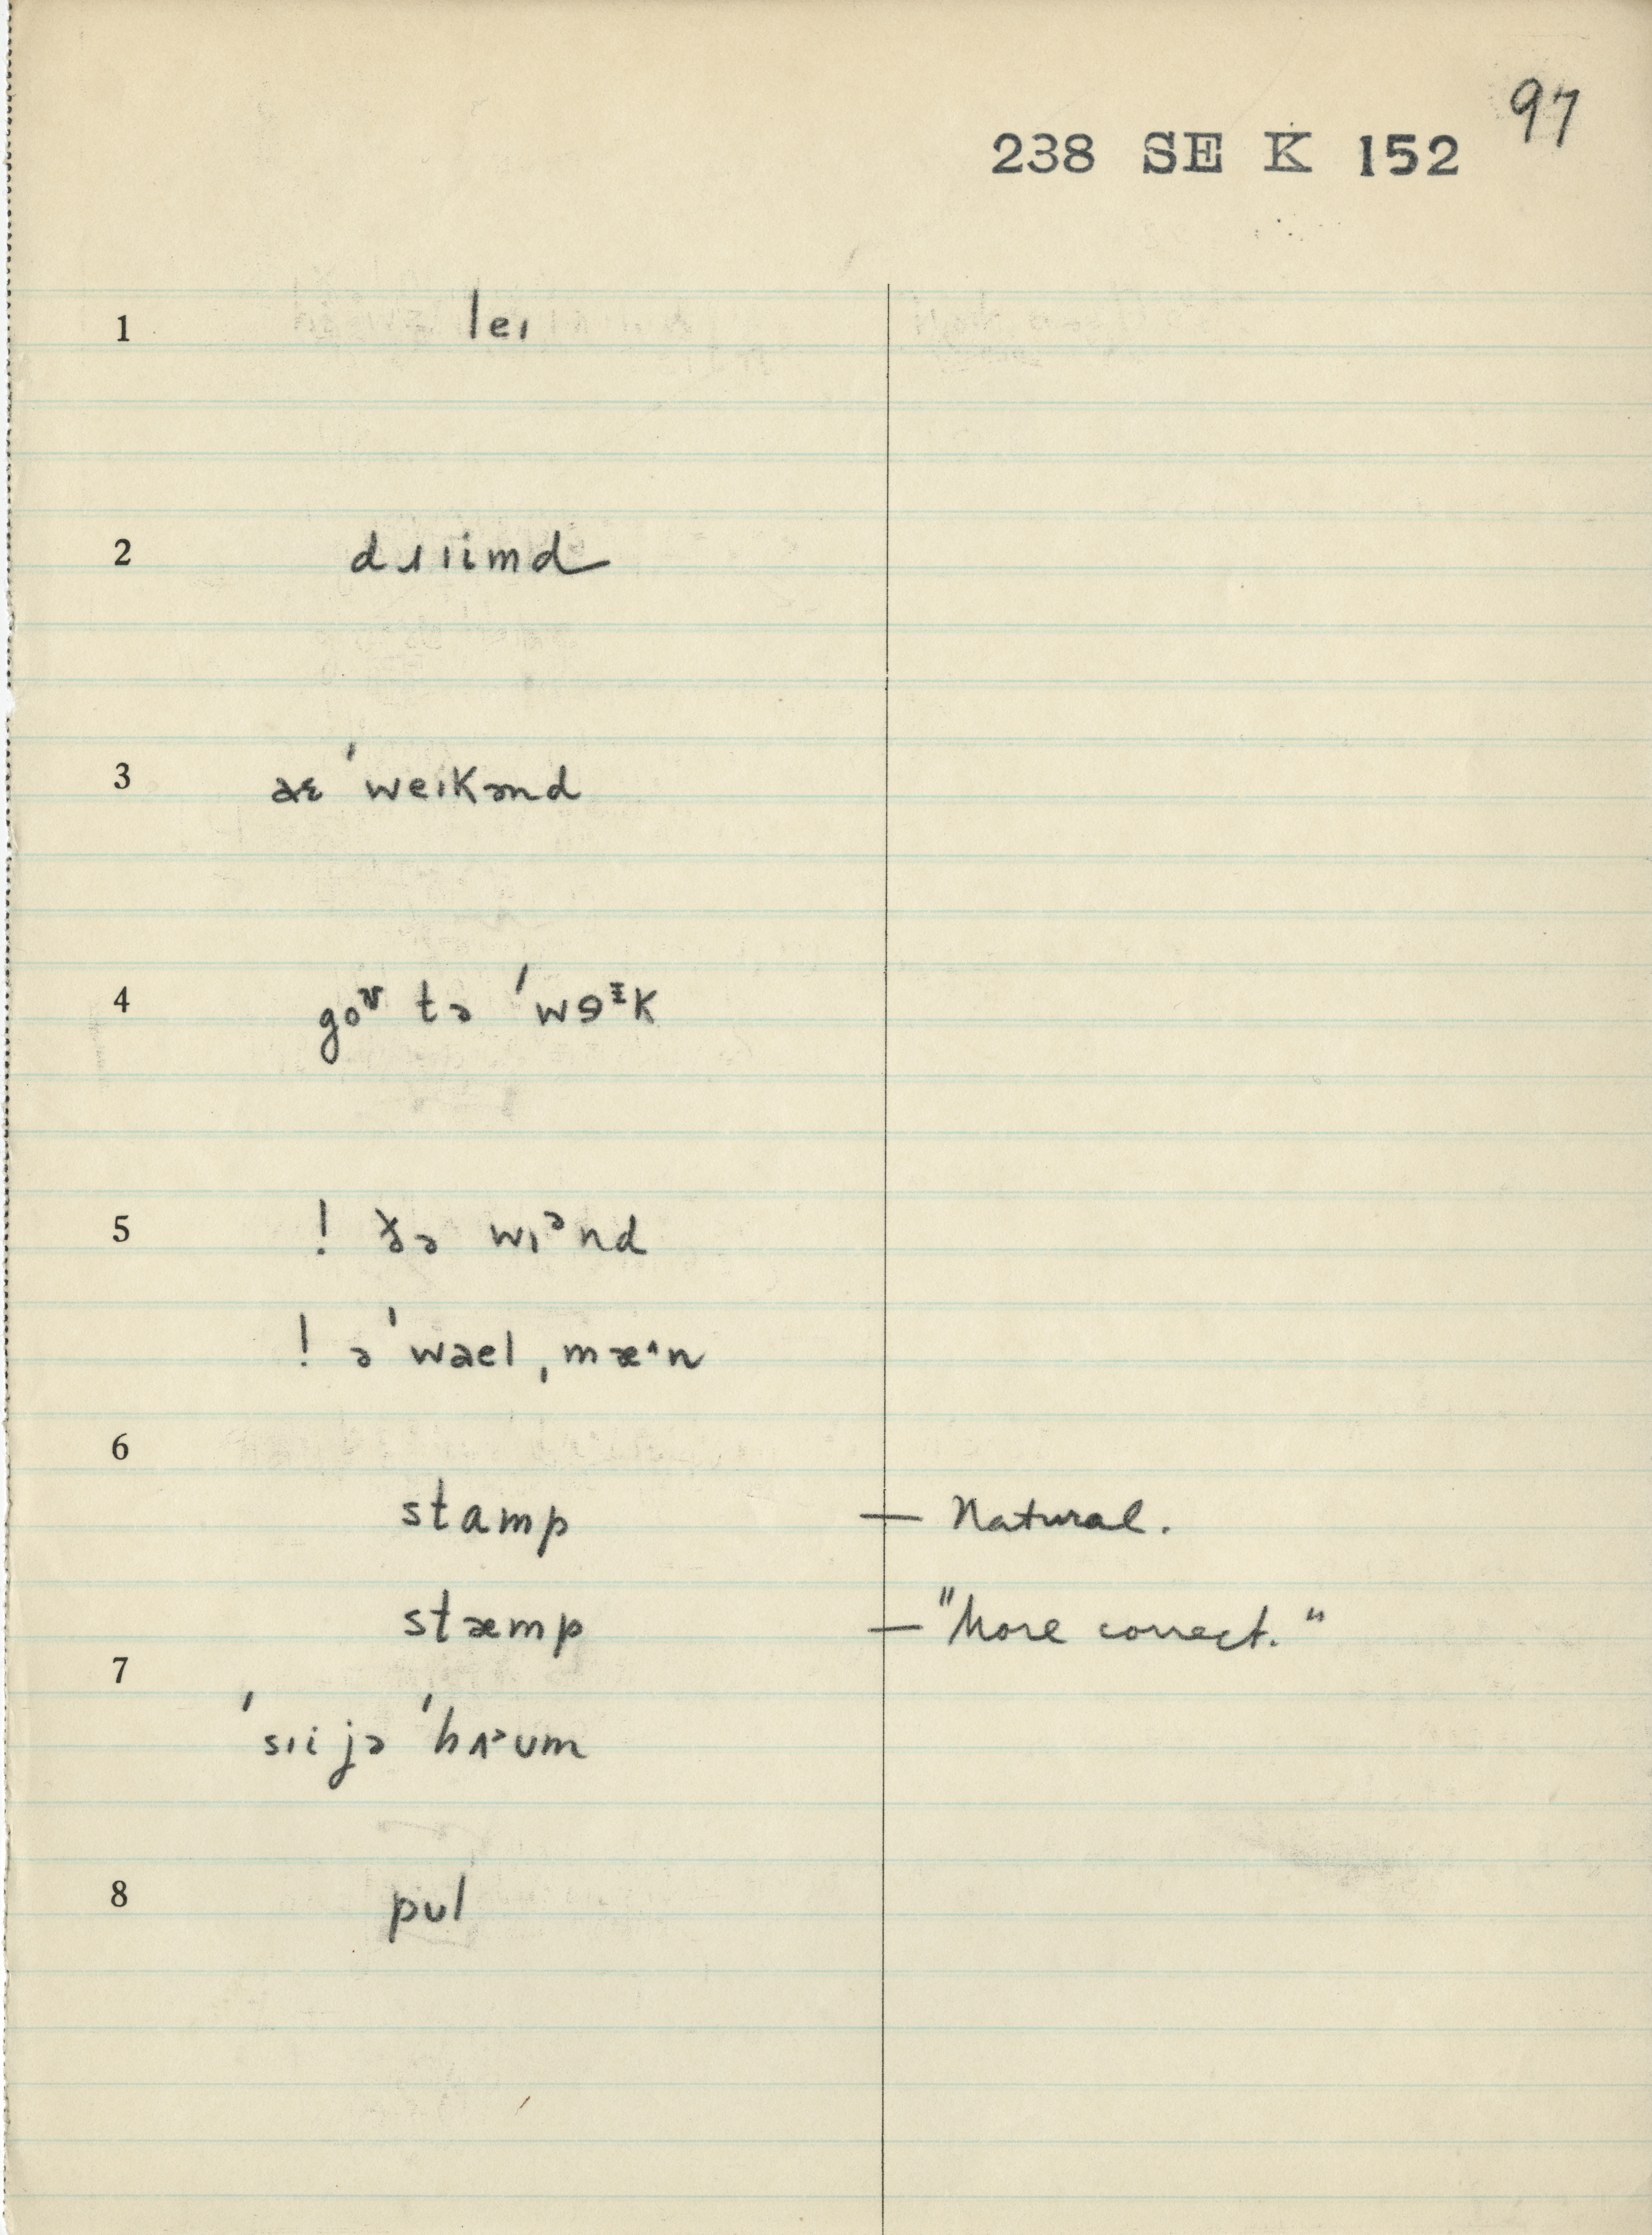 97
238 SE K 152
1 leɪ
2 dɹɪimd
3 əɛ ˈweɪkənd
4 goᶷ tə ˈwɘᵻk
5 ! ðə wɪᵊnd
! əˈwəel ˌmæ^n
6
stamp — Natural.
stæmp — "More correct."
7
ˈsɪi jə ˈhʌᵊʊm
8 pʊl